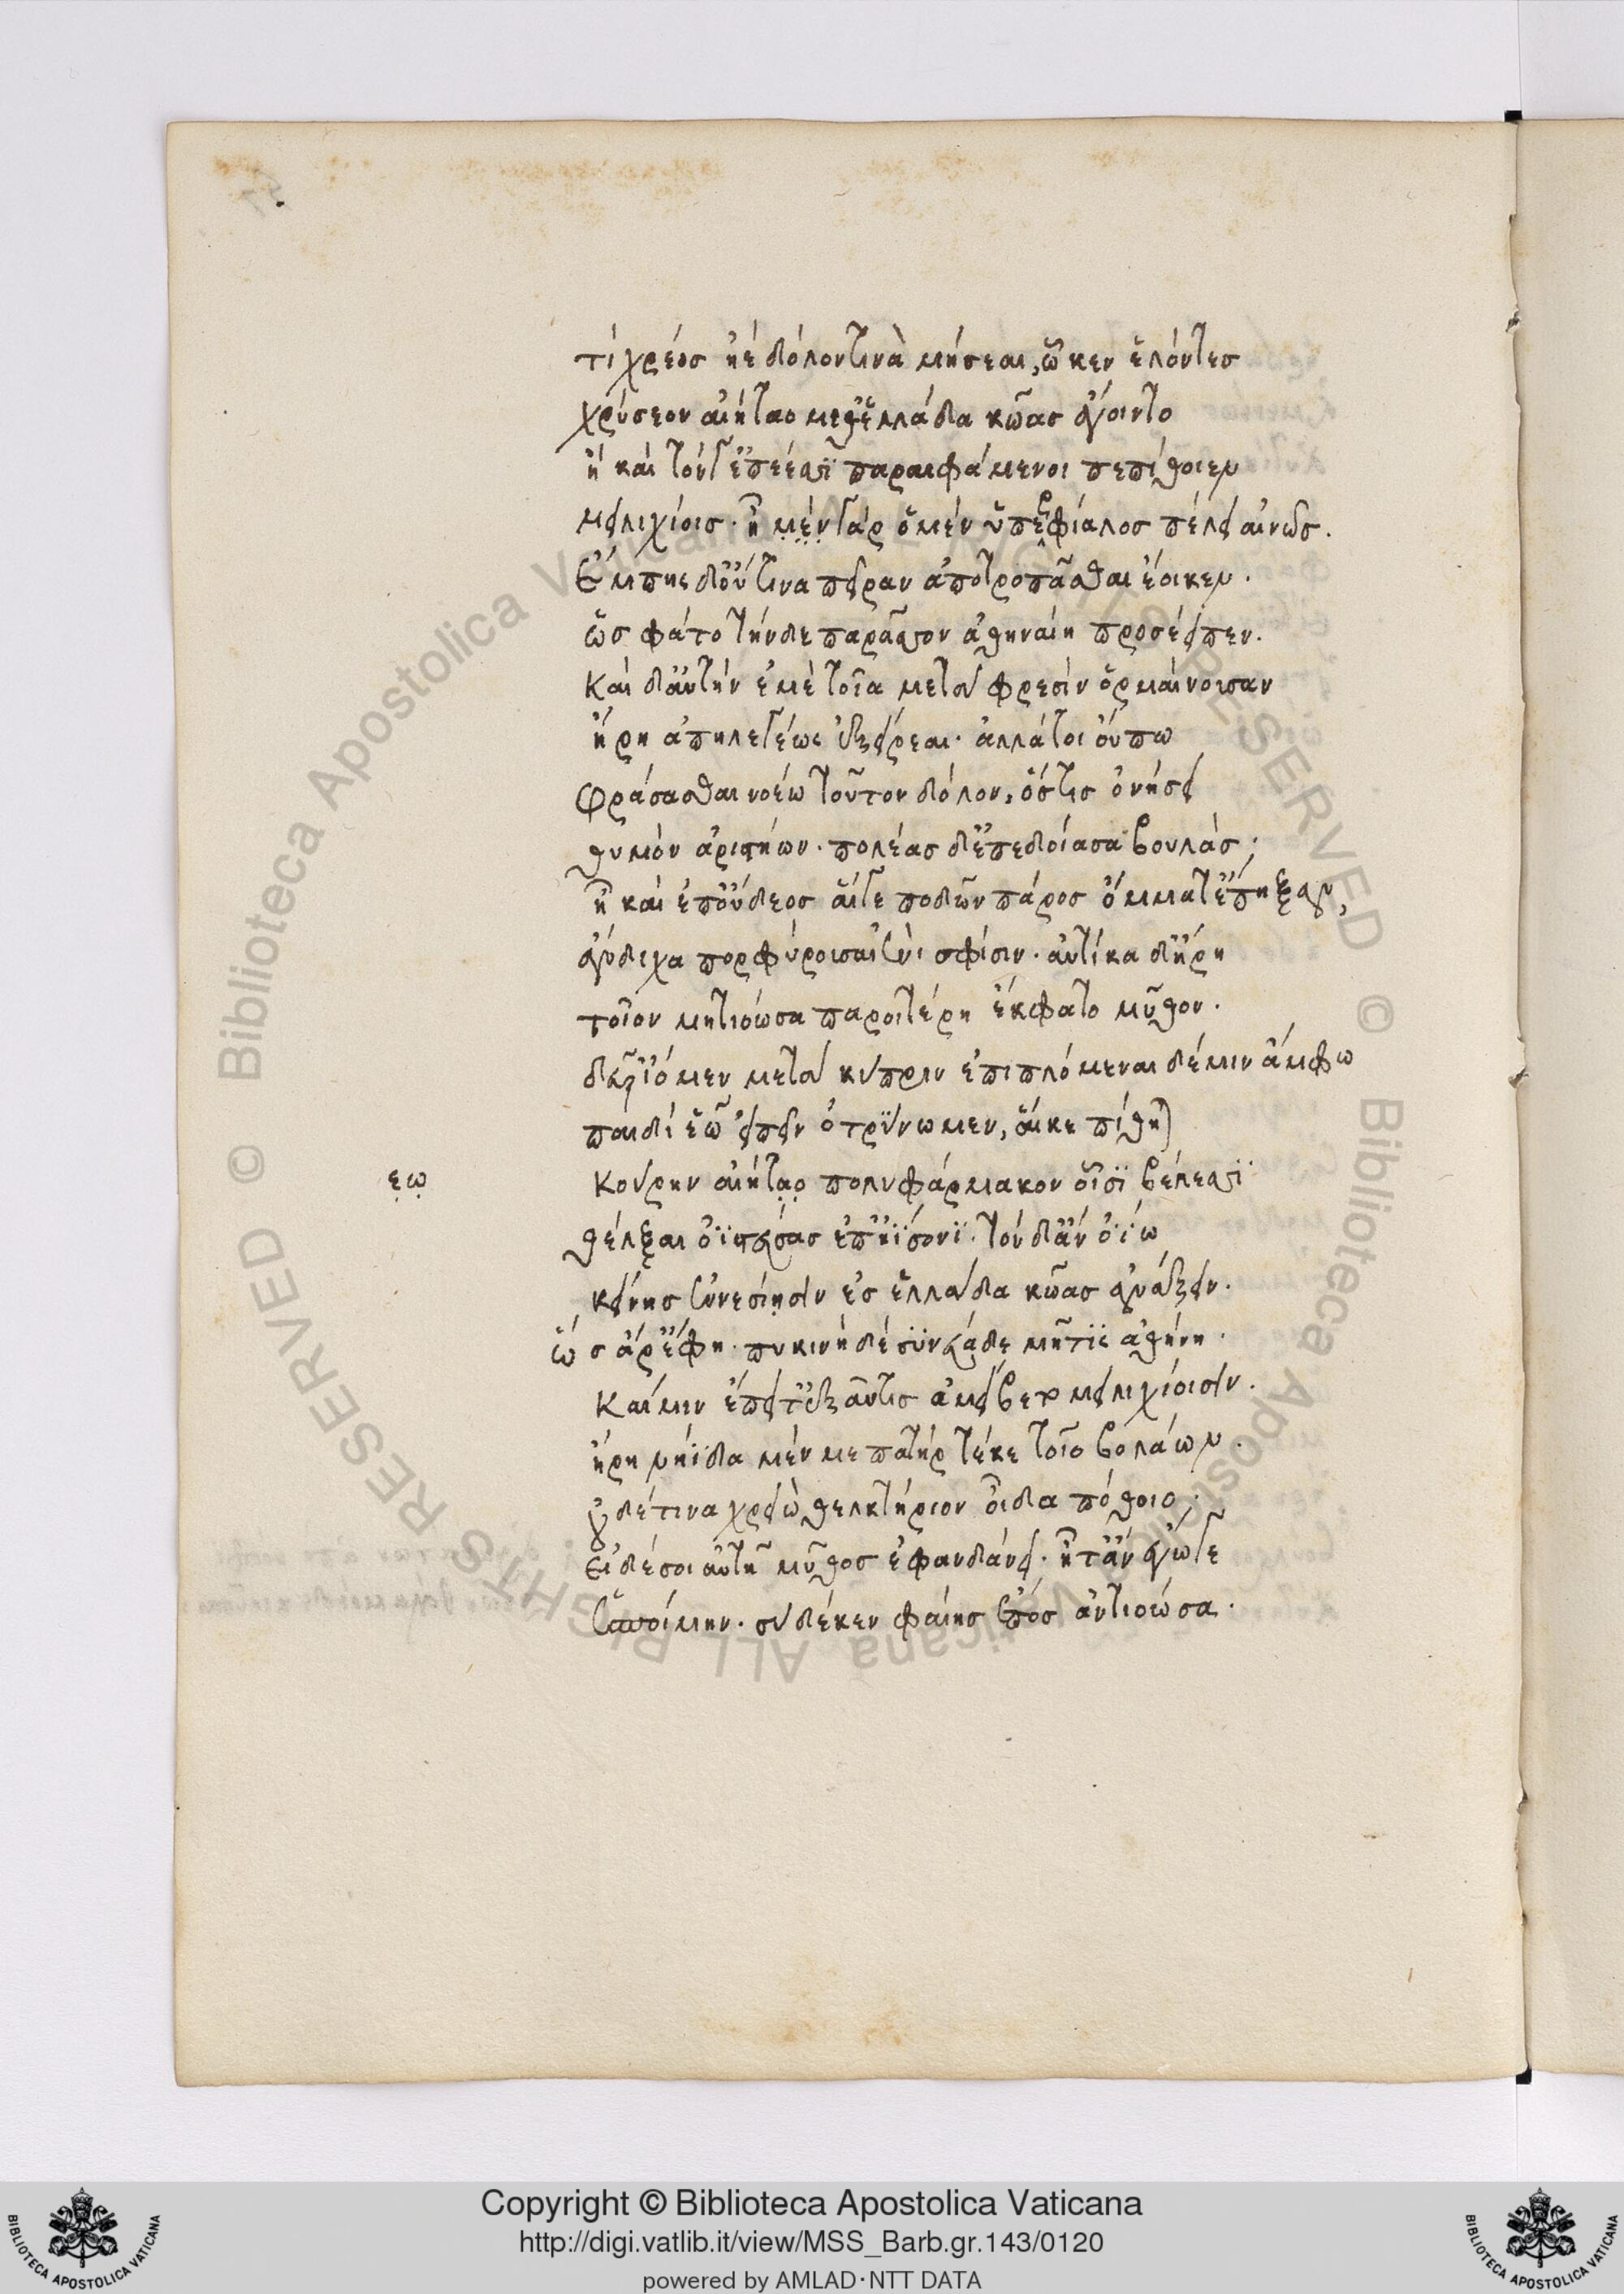 τί χρέος ἠὲ δόλον τινὰ μήσεαι, ὧ κεν ἑλόντες
χρύσεον αἰήταο μεθ' ἑλλάδα κῶας ἄγοιντο
ἢ καὶ τόνγ' ἐπέεσσϊ παραιφάμενοι πεπίθοιεν
μειλιχίοις. ἦ μὲν γὰρ ὁ μὲν ὑπερφίαλος πέλει αἰνῶς.
Ἔμπης δ' οὔτινα πεῖραν ἀποτροπᾶσθαι ἔοικεν.
ὣς φάτο τὴν δὲ παρᾶσσον ἀθηναίη προσέειπεν.
Καὶ δ' αὐτὴν ἐμὲ τοῖα μετὰ φρεσὶν ὁρμαίνουσαν
ἥρη ἀπηλεγέως ἐξείρεαι. ἀλλά τοι οὔπω
φράσασθαι νοέω τοῦτον δόλον, ὅστις ὀνήσει
θυμὸν ἀριστήων. πολέας δ' ἐπεδοίασα βουλάς;
ἦ καὶ ἐπ' οὔδεος αἵγε ποδῶν πάρος ὄμματ' ἔπηξαν,
ἄνδιχα πορφύρουσαι ἐνὶ σφίσιν. αὐτίκα δ' ἥρη
τοῖον μητιόωσα παροιτέρη ἔκφατο μῦθον.
δεῦρ' ἴομεν μετὰ κύπριν ἐπιπλόμεναι δέ μιν ἄμφω
παιδὶ ἑῶ εἰπεῖν ὀτρύνωμεν, αἴκε πίθηται
εω
Κούρην αἰήταο πολυφάρμακον οἷσϊ βέλεσσϊ
θέλξαι ὀϊστεύσας ἐπ' ἰήσονϊ. τὸν δ' ἂν ὀΐω
κείνης ἐννεσίησιν ἐς ἑλλάδα κῶας ἀνάξειν.
ὣς ἄρ' ἔφη. πυκινὴ δὲ συνεύαδε μῆτϊς ἀθήνη.
Καί μιν ἔπειτ' ἐξαῦτις ἀμείβετο μειλιχίοισιν.
ἥρη νήϊδα μέν με πατὴρ τέκε τοῖο βολάων.
οὐδέ τινα χρειὼ θελκτήριον οἶδα πόθοιο;
Εἰ δέ σοι αὐτῆ μῦθος ἐφανδάνει. ἦ τ' ἂν ἔγωγε
ἑσποίμην. σὺ δέ κεν φαίης ἔπος ἀντιόωσα.
Copyright © Biblioteca Apostolica Vaticana
http://digi.vatlib.it/view/MSS_Barb.gr.143/0120
powered by AMLAD·NTT DATA